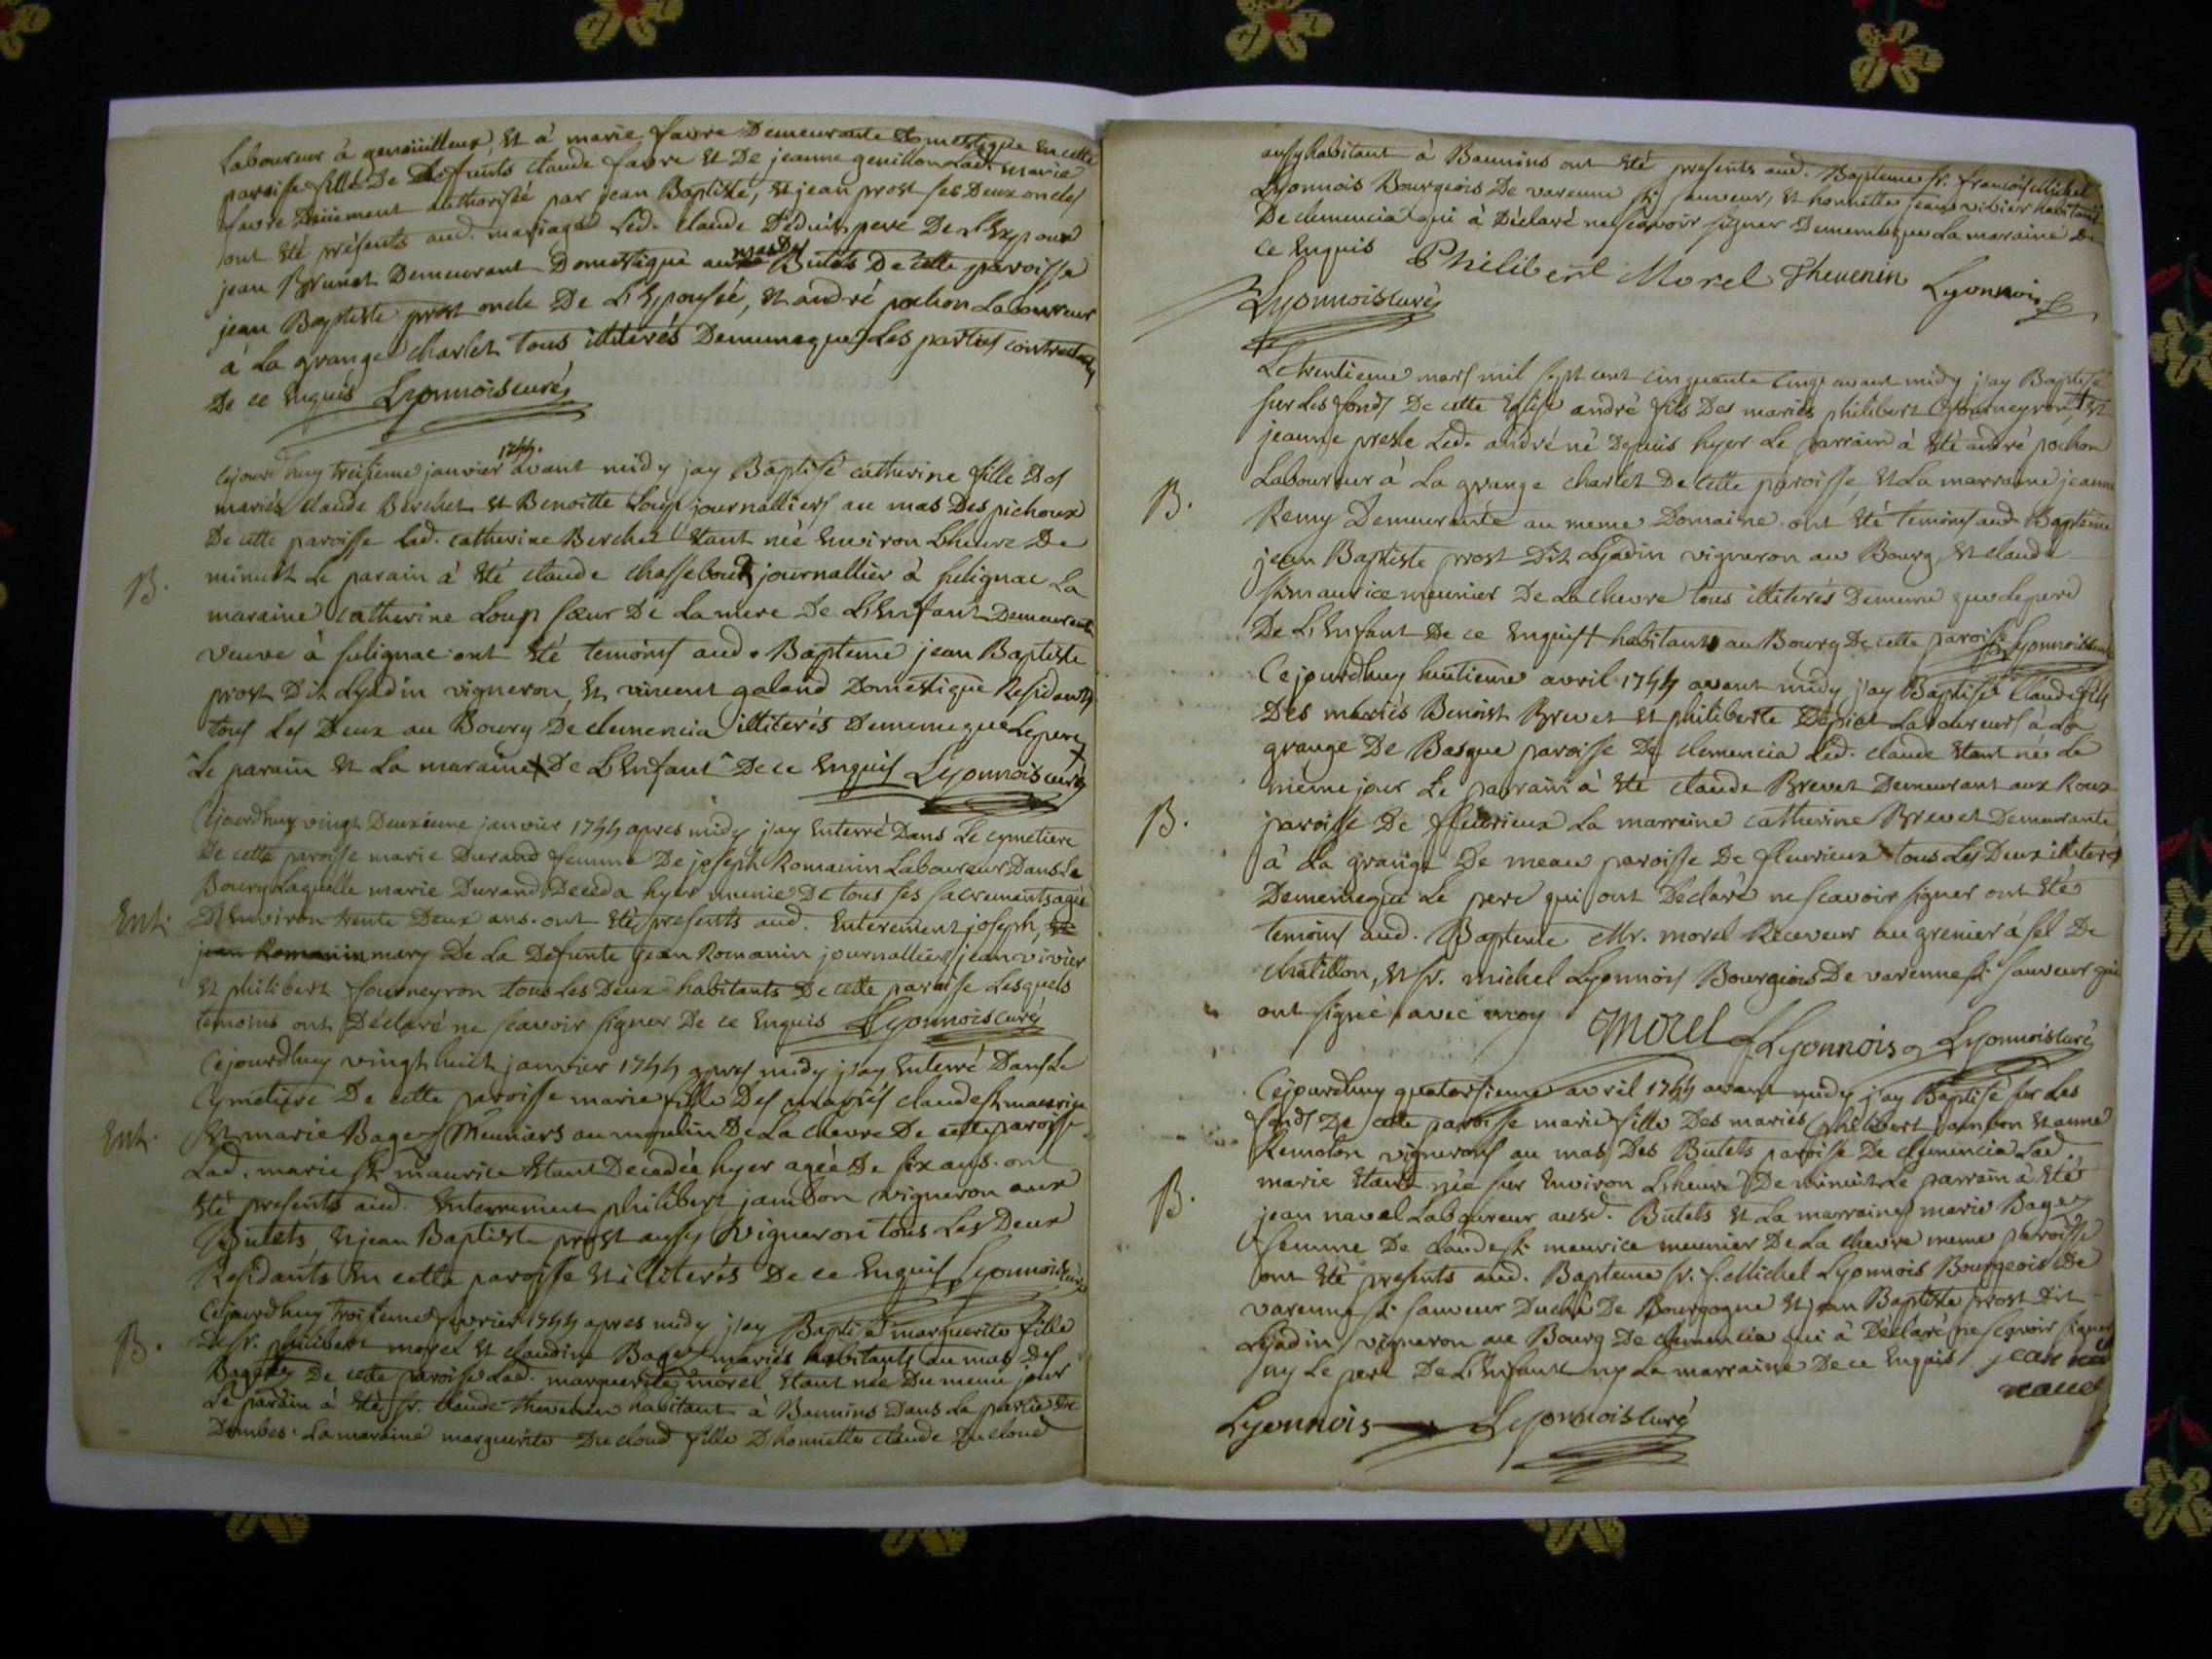 Laboureur à genoüilleux, Et à marie favre Demeurante Domestique En cette
paroisse fille De Defunts claude favre Et De jeanne genillon Lad. marie
favre Düement authorisée par jean Baptiste, Et jean prost ses Deux oncles
ont Eté présents aud. mariage Led. claude Déduit pere De L'Expoux
jean Brunet Demeurant Domestique au mas Des Butets De cette paroisse
jean Baptiste prost oncle De L'Epousée, Et andré pochon Laboureur
à La grange charlet tous illiterés Dememeque Les parties contractantes
De ce Enquis Lyonnois curé
Cejourd'huy treisieme janvier 1744. avant midy jay Baptisé catherine fille Des
mariés claude Berchet Et Benoitte Loup journalliers au mas Des pichoux
De cette paroisse lad. catherine Berchet Etant née Environ L'heure De
B. minuit Le parain à Eté claude chassebout journallier à sulignac La
maraine catherine Loup sœur De La mere De L'Enfant Demeurante
veuve à sulignac ont Eté temoins aud. Bapteme jean Baptiste
prost Dit Lyadin vigneron, Et vincent galand Domestique Residants
tous Les Deux au Bourg De clemencia illiterés Dememeque Le pere
Le parain Et La maraine De L'Enfant De ce Enquis Lyonnois curé
Cejourdhuy vingt Deuxieme janvier 1744 apres midy j'ay Enterré Dans Le cymetiere
De cette paroisse marie Durand femme De joseph Romanin Laboureur Dans Le
Bourg Laquelle marie Durand Deceda hyer munie De tous ses sacrements agée
Ent. D'Environ trente Deux ans. ont Eté presents aud. Enterement joseph,
jean Romanin mary De La Defunte jean Romanin journallier jean vivier
Et philibert fourneyron tous Les Deux habitants De cette paroisse Lesquels
temoins ont Déclaré ne scavoir signer De ce Enquis Lyonnois curé
Cejourdhuy vingt huit janvier 1744 apres midy j'ay Enterré Dans Le
Cymetiere De cette paroisse marie fille Des mariés claude st. maurice
Ent. Et marie Baget Meuniers au moulin De La chevre De cette paroisse
Lad. marie st. maurice Etant Decedée hyer agée De six ans. ont
Eté presents aud. Enterrement philibert jambon vigneron aux
Butets, Et jean Baptiste prost aussy vigneron tous Les Deux
Residants En cette paroisse Et illiterés De ce Enquis Lyonnois curé
Cejourdhuy troisieme fevrier 1744 apres midy j'ay Baptisé marguerite fille
B. De sr. philibert morel Et claudine Baget mariés habitants au mas Des
De cette paroisse Lad. marguerite morel Etant née Du meme jour
Le parain à Eté sr. claude thevenin habitant à Bannins Dans La partie De
Dombes. La maraine marguerite Ducloud fille D'honnette claude Ducloud
aussy habitant à Bannins ont Eté presents aud. Bapteme sr. francois Michel
Lyonnois Bourgeois De varenne st. sauveur, Et honnette jean vivier habitant
De clemencia qui à Déclaré ne scavoir signer Dememeque La maraine De
ce Enquis Philibert Morel Thevenin Lyonnois
Lyonnois curé
Le trentieme mars mil sept cent cinquante cinq avant midy j'ay Baptisé
sur Les fonds De cette Eglise andré fils Des mariés philibert fourneyron, Et
jeanne presle Led. andré né Depuis hyer Le parrain à Eté andré pochon
Laboureur à La grange charlet De cette paroisse, Et La marraine jeanne
B. Remy Demeurante au meme Domaine. ont Eté temoins aud. Bapteme
jean Baptiste prost Dit Lyadin vigneron au Bourg, Et claude
st. maurice meunier De La chevre tous illiterés Dememe que Le pere
De L'Enfant De ce Enquis + habitants au Bourg De cette paroisse Lyonnois curé
Cejourdhuy huitieme avril 1744 avant midy j'ay Baptisé Claude fils
Des mariés Benoist Brevet Et philiberte Laboureurs à La
grange De Basque paroisse De clemencia Led. claude Etant né Le
même jour Le parrain à Eté claude Brevet Demeurant aux Roux
B. paroisse De fleurieux La marraine catherine Brevet Demeurante
à La grange De meau paroisse De fleurieux tous Les Deux illiterés
Dememeque Le pere qui ont Déclaré ne scavoir signer ont Eté
temoins aud. Bapteme Mr. morel Receveur au grenier à sel De
châtillon, Et sr. michel Lyonnois Bourgeois De varenne st. sauveur qui
ont signé avec moy Morel Lyonnois Lyonnois curé
Cejourdhuy quatorsieme avril 1744 avant midy j'ay Baptisé sur Les
fonds De cette paroisse marie fille Des mariés philibert jambon Et anne
Remolon vignerons au mas Des Butets paroisse De clemencia Lad.
marie Etant née sur Environ L'heure De minuit Le parrain à Eté
B. jean navel Laboureur ausd. Butets Et La marraine marie Baget
femme De claude st. maurice meunier De La chevre meme paroisse
ont Eté presents aud. Bapteme sr. f. Michel Lyonnois Bourgeois De
varenne st. sauveur Duché De Bourgogne Et jean Baptiste prost Dit
Lyadin vigneron au Bourg De clemencia qui à Déclaré ne scavoir signer
ny Le pere De L'Enfant ny La marraine De ce Enquis jean
navel
Lyonnois Lyonnois curé